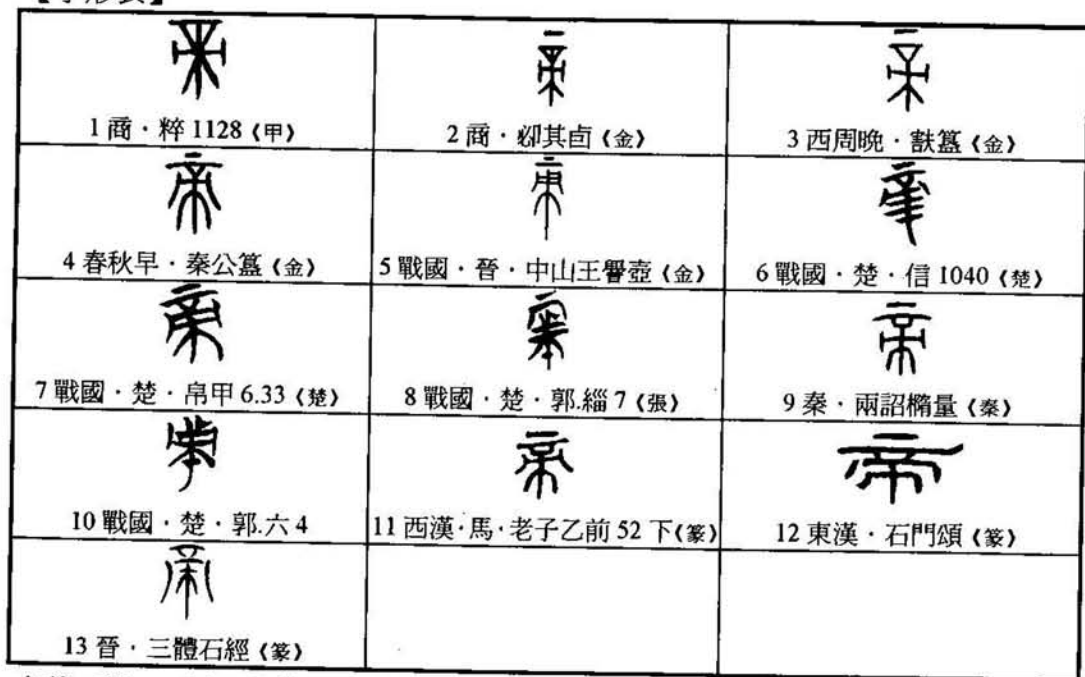 1 商．粹 1128《甲》
2 商．𠨘其卣《金》
3 西周晚．㝬簋《金》
4 春秋早．秦公簋《金》
5 戰國．晉．中山王䁐壺《金》
6 戰國．楚．信 1040《楚》
7 戰國．楚．帛甲 6.33《楚》
8 戰國．楚．郭.緇 7《張》
9 秦．兩詔橢量《秦》
10 戰國．楚．郭.六 4
11 西漢．馬．老子乙前 52 下《篆》
12 東漢．石門頌《篆》
13 晉．三體石經《篆》